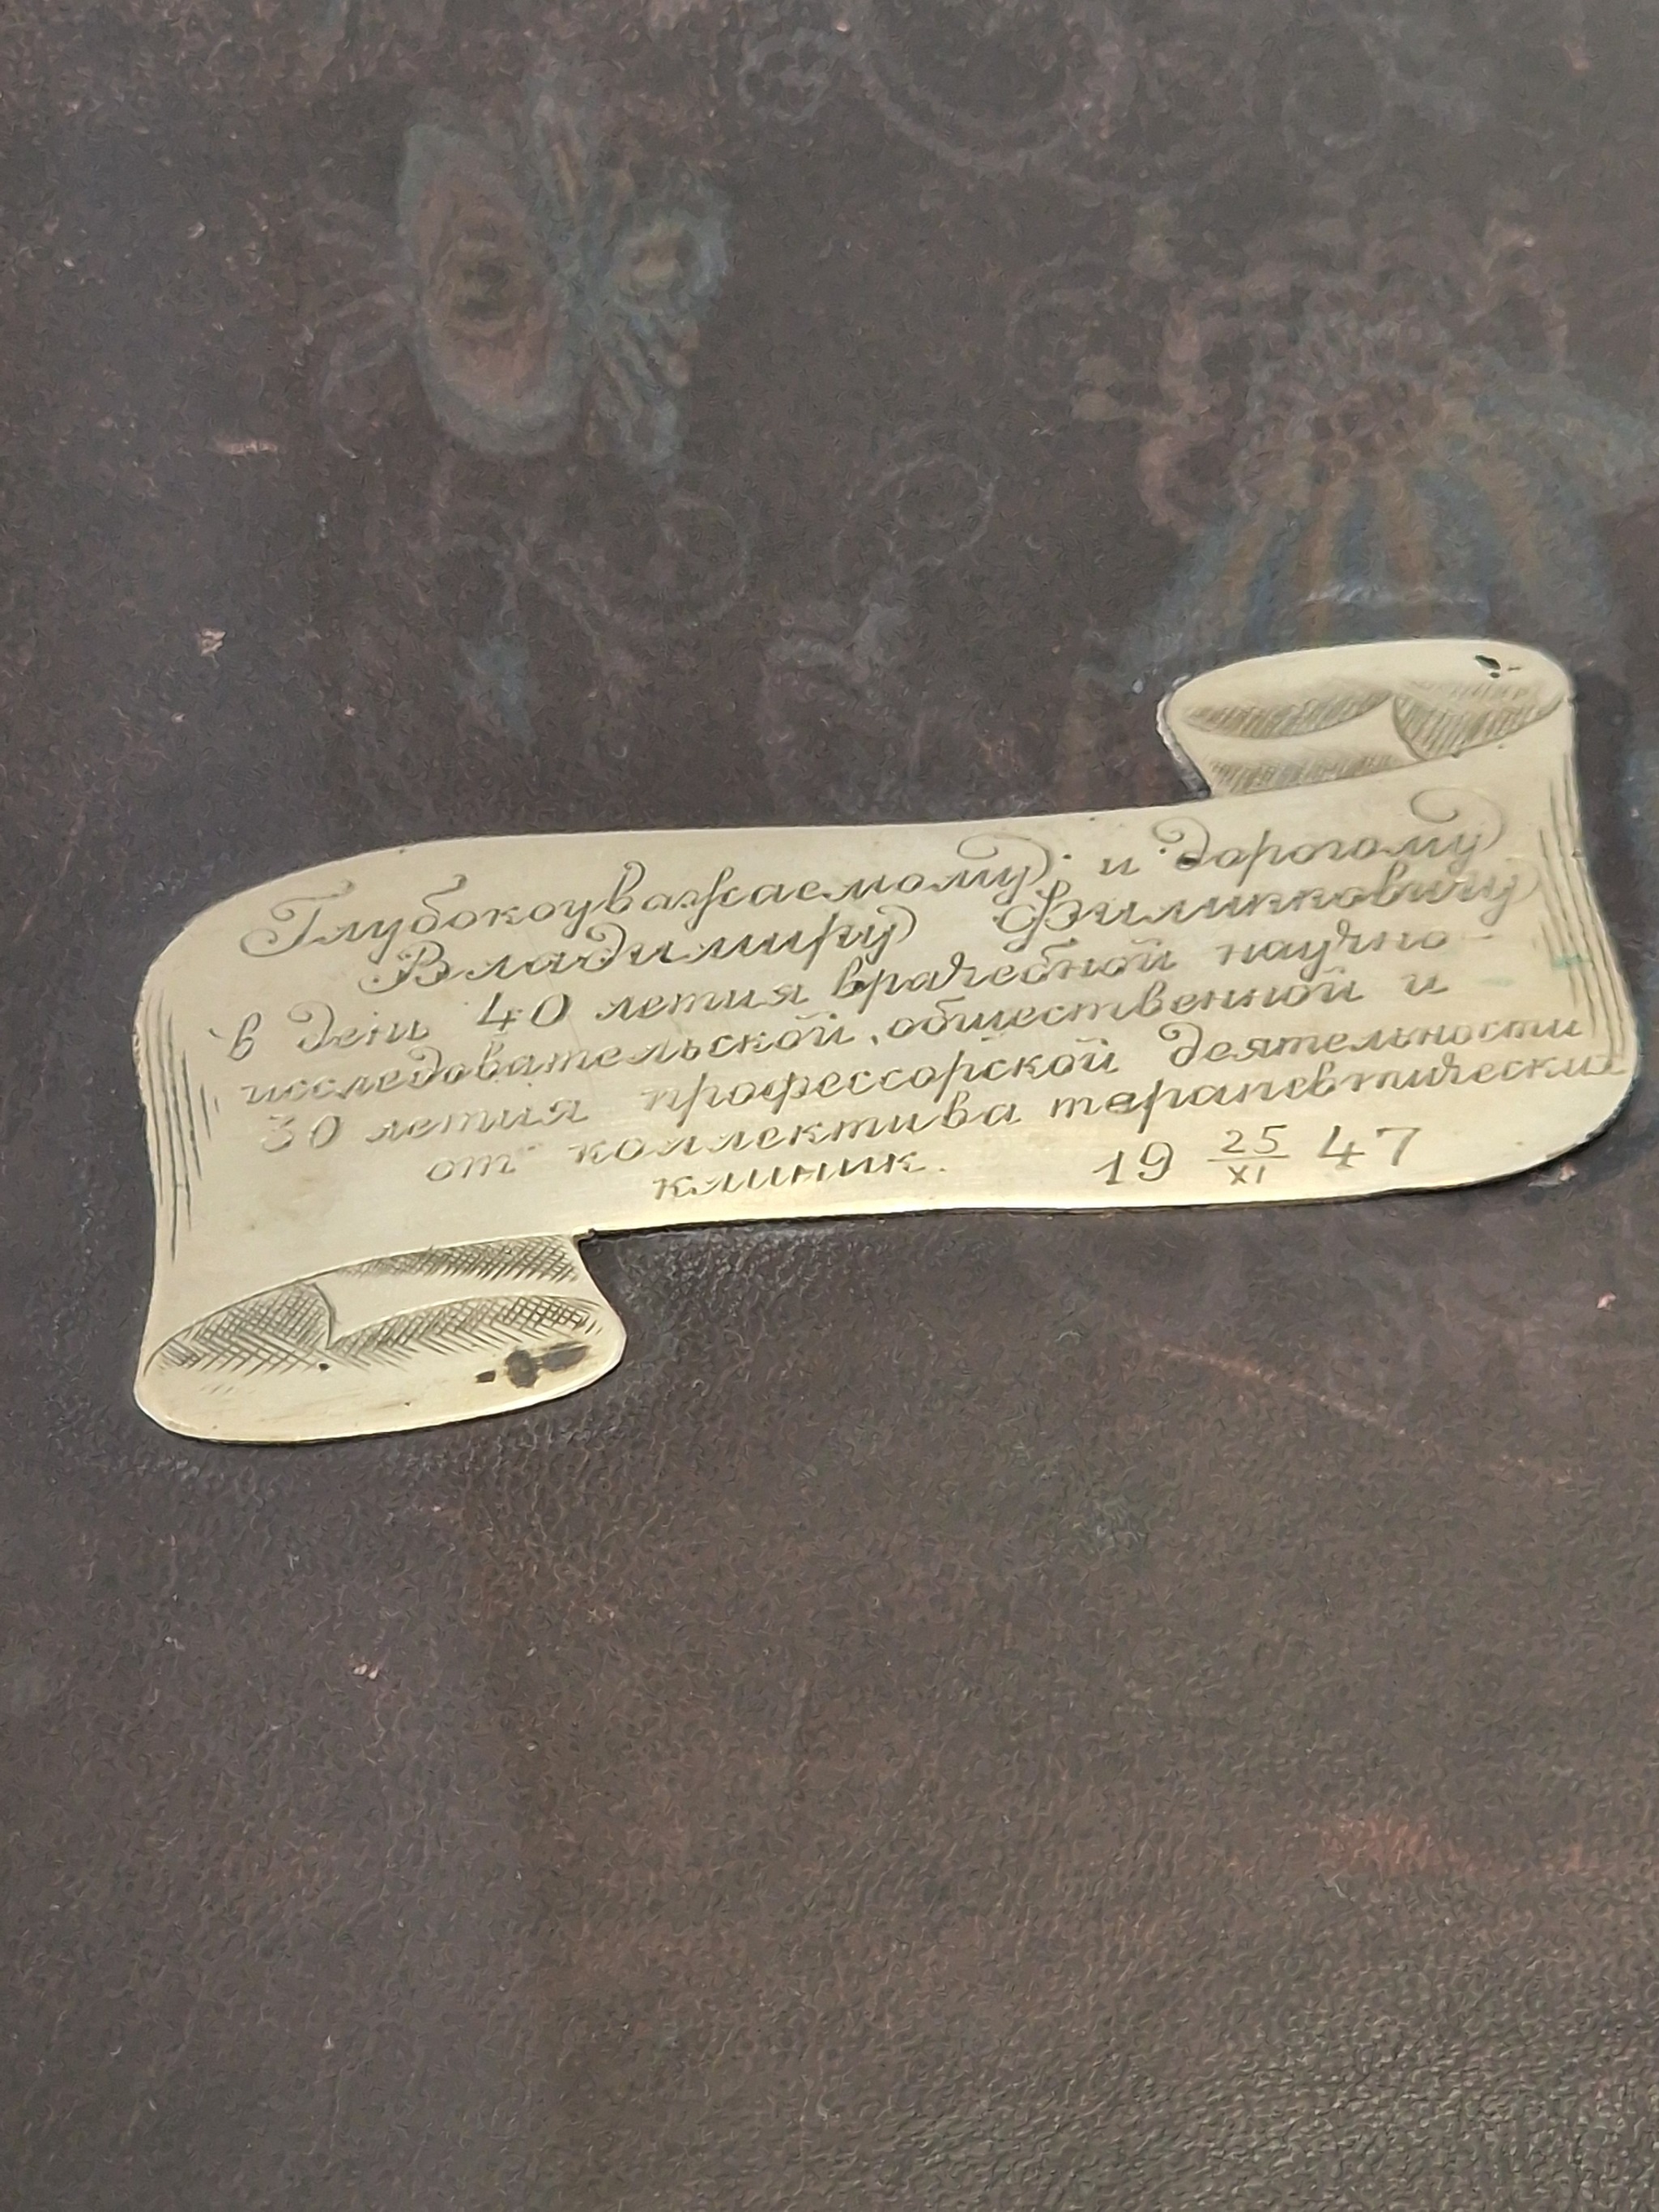 Глубокоуважаемому и дорогому
Владимиру Филипповичу
в день 40 летия врачебной научно-
исследовательской, общественной и
30 летия профессорской деятельности
от коллектива терапевтических
клиник. 19 25/XI 47